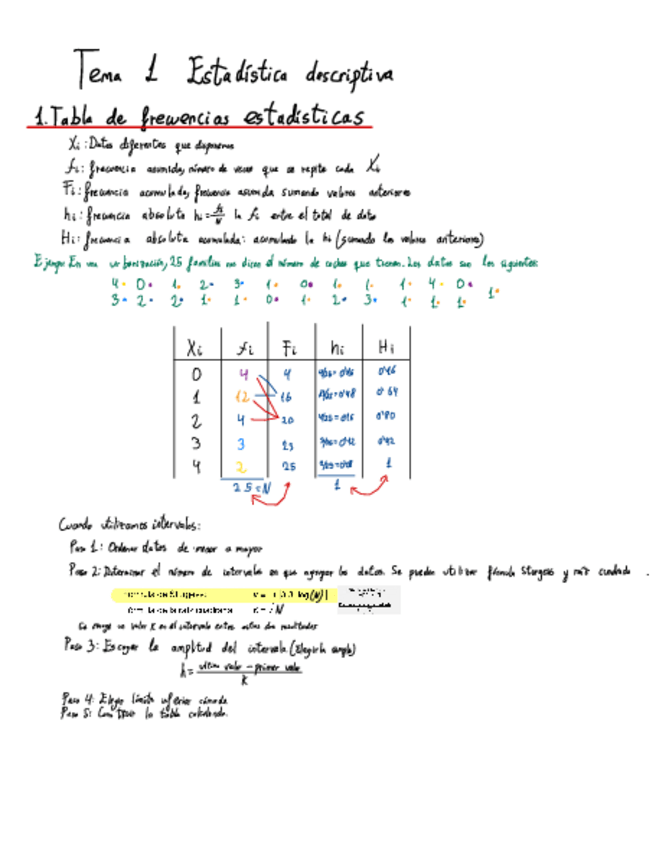 Tema 1 Estadística descriptiva
1. Tabla de frecuencias estadísticas
Xi: Datos diferentes que disponemos
fi: frecuencia asumida, número de veces que se repite cada Xi
Fi: frecuencia acumulada, frecuencia asumida sumando valores anteriores
hi: frecuencia absoluta hi = fi/N la fi entre el total de datos
Hi: frecuencia absoluta acumulada: acumulando la hi (sumando los valores anteriores)
Ejemplo: En una urbanización, 25 familias nos dicen el número de coches que tienen. Los datos son los siguientes:
4 0 1 2 3 1 0 1 1 1 4 0
3 2 2 1 1 0 1 2 3 1 1 1 1
Xi fi Fi hi Hi
0 4 4 4/25=0'16 0'16
1 12 16 12/25=0'48 0'64
2 4 20 4/25=0'16 0'80
3 3 23 3/25=0'12 0'92
4 2 25 2/25=0'08 1
25=N 1
Cuando utilizamos intervalos:
Paso 1: Ordenar datos de menor a mayor
Paso 2: Determinar el número de intervalos en que agrupar los datos. Se pueden utilizar fórmula Sturges y raíz cuadrada.
Fórmula de Sturges: log(N)
fórmula de la raíz cuadrada K = √N
Se escoge un valor K en el intervalo entre estos dos resultados
Paso 3: Escoger la amplitud del intervalo. (Elegirla)
h = último valor - primer valor / K
Paso 4: Elegir límite inferior cómodo
Paso 5: Construir la tabla